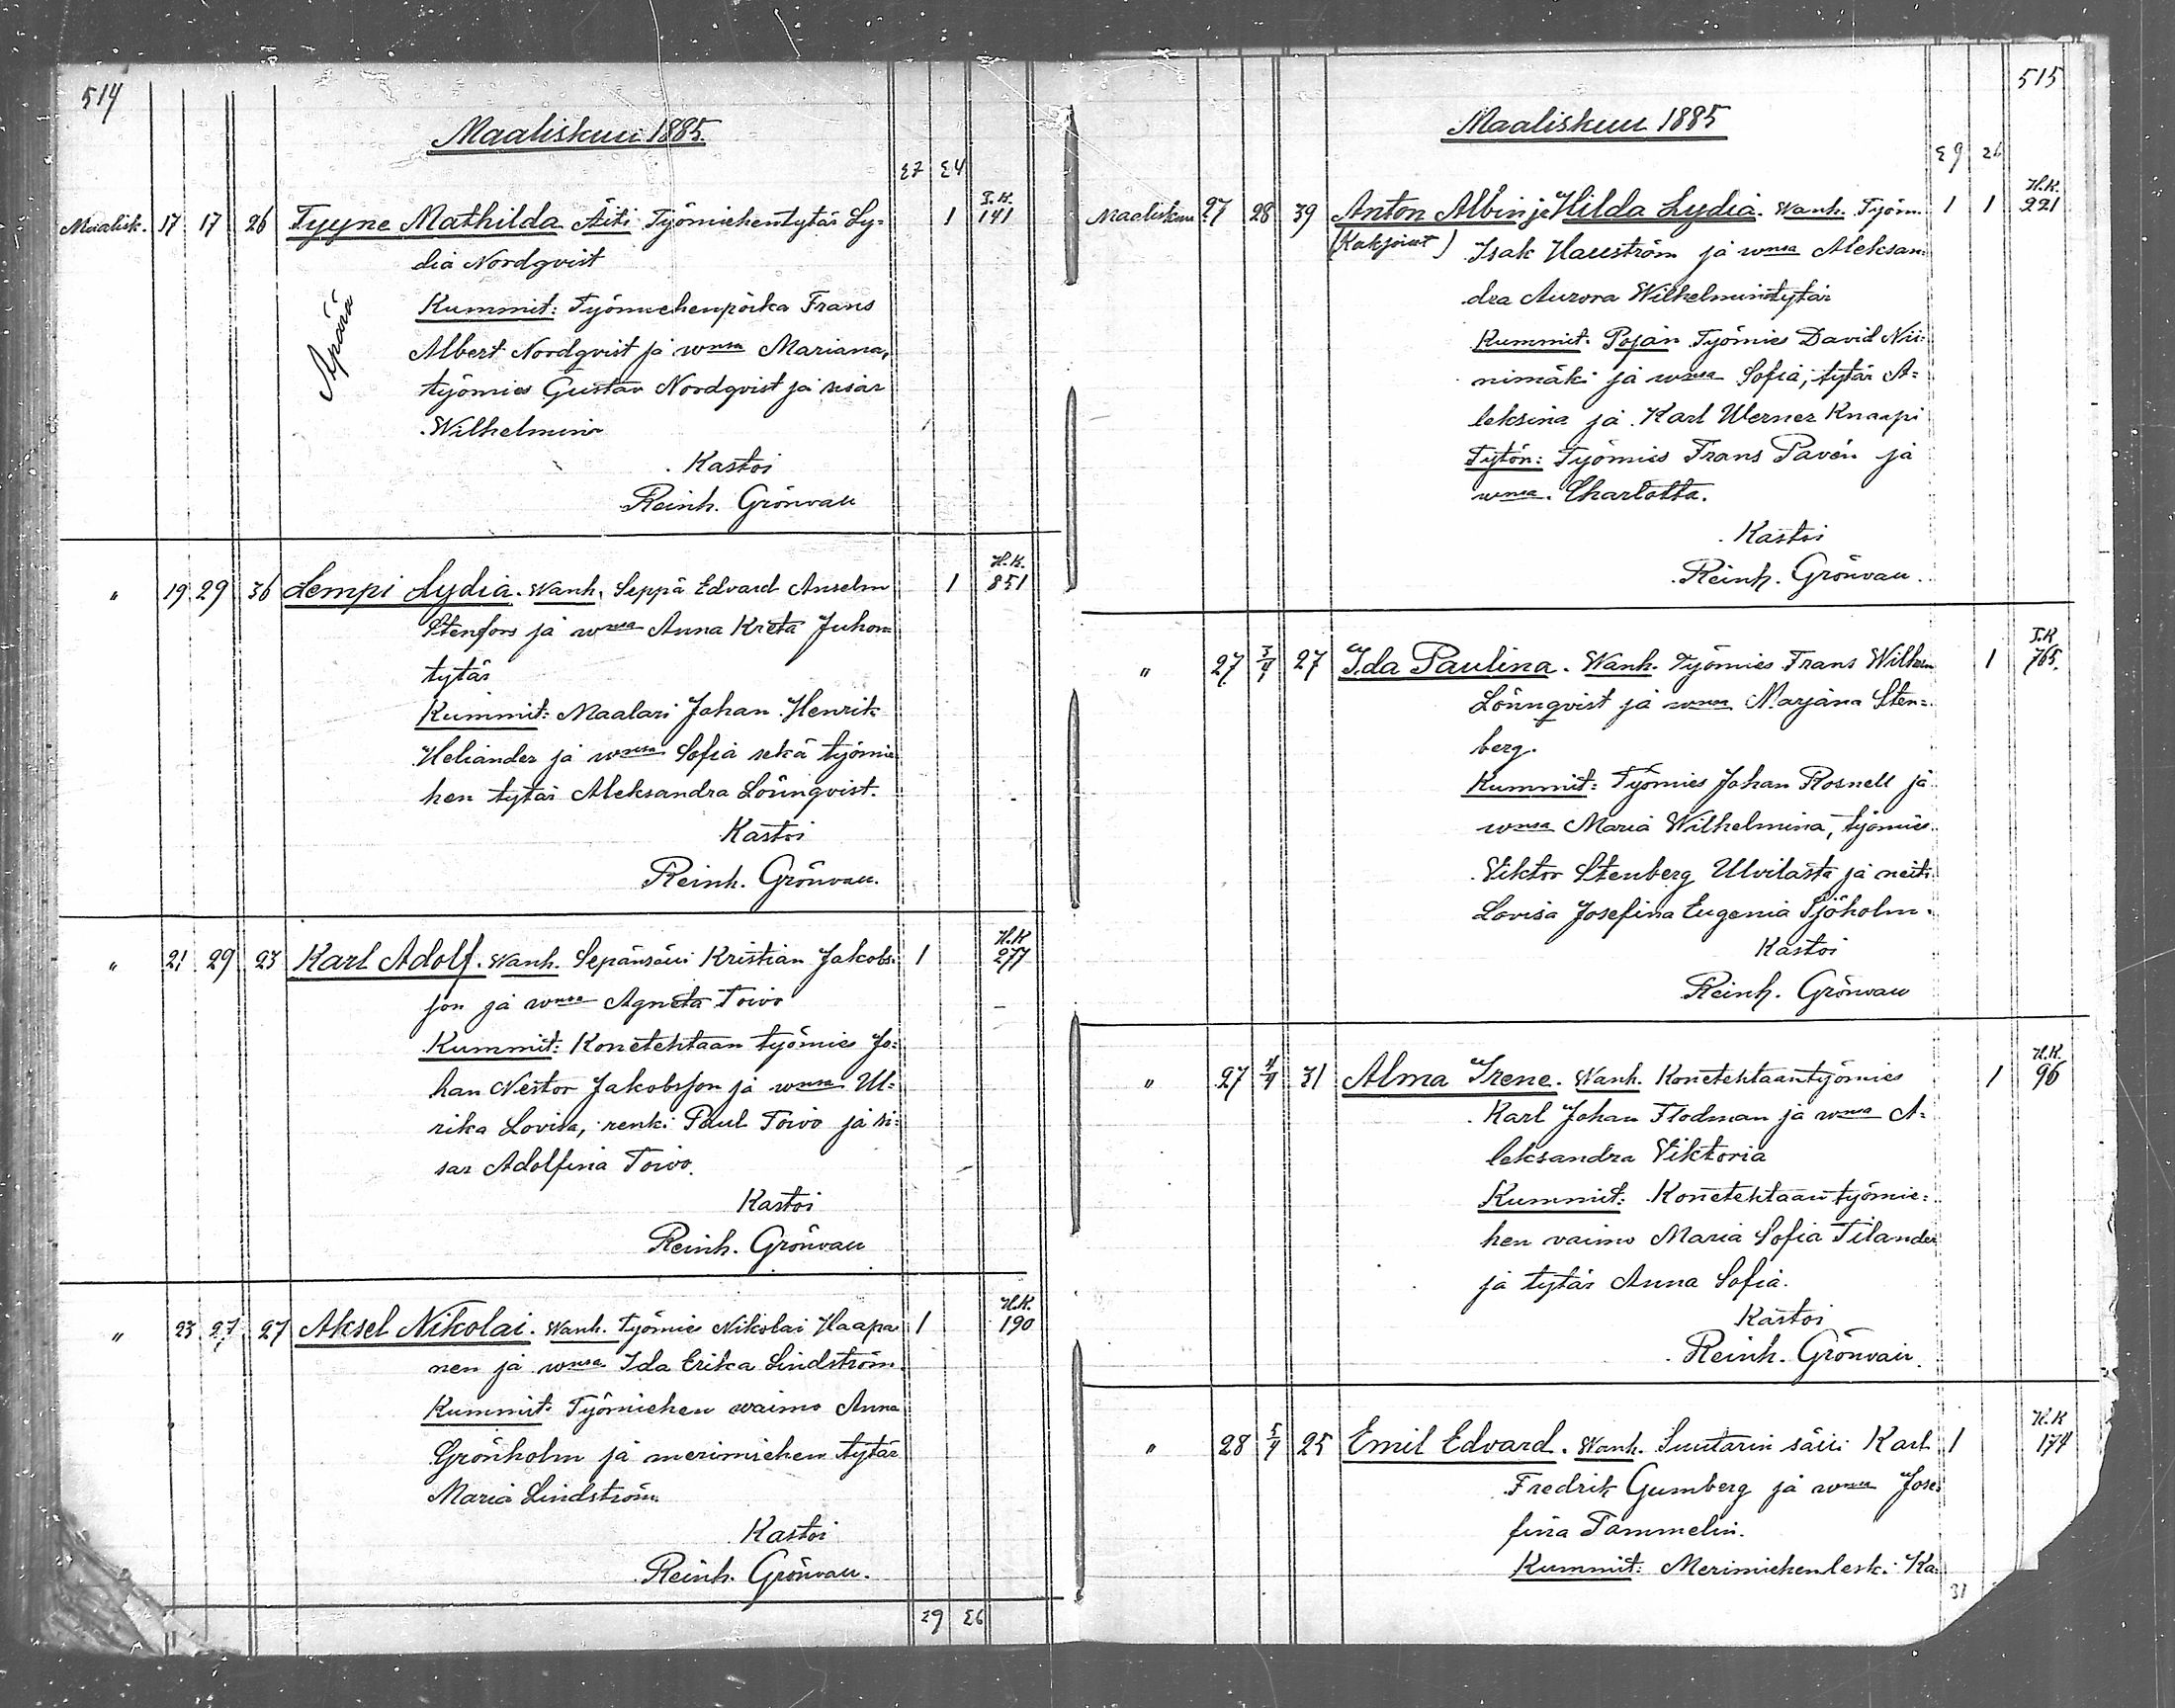 514
Maaliskuu 1885.
27 24
Maalisk. 17 17 26 Tyyne Mathilda Äiti Työmiehentytär Ly= 1 I.K. 141
dia Nordqvist
Äpärä
Kummit: Työmiehenpoika Frans
Albert Nordqvist ja wmsa Mariana,
työmies Gustav Nordqvist ja sisar
Wilhelmina
Kastoi
Reinh. Grönvall
" 19 29 36 Lempi Lydia. Wanh. Seppä Edvard Anselm 1 H.K. 851
Stenfors ja wmsa Anna Kreta Juhon
tytär
Kummit: Maalari Johan Henrik
Heliander ja wmsa Sofia sekä työmie
hen tytär Aleksandra Lönnqvist.
Kastoi
Reinh. Grönvall.
" 21 29 23 Karl Adolf. Wanh. Sepänsälli Kristian Jakobs= 1 H.K 277
son ja wmsa Agneta Toivo
Kummit: Konetehtaan työmies Jo=
han Nestor Jakobsson ja wmsa Ul=
rika Lovisa, renki Paul Toivo ja si=
sar Adolfina Toivo.
Kastoi
Reinh. Grönvall
" 23 27 27 Aksel Nikolai. Wanh. Työmies Nikolai Haapa 1 H.K. 190
nen ja wmsa Ida Erika Lindström
Kummit: Työmiehen waimo Anna
Grönholm ja merimiehen tytär
Maria Lindström
Kastoi
Reinh. Grönvall.
29 26
515
Maaliskuu 1885
29 26
Maaliskuu 27 28 39 Anton Albin ja Hilda Lydia. Wanh. Työm. 1 1 H.K. 221
(Kaksoiset) Isak Hallström ja wmsa Aleksan=
dra Aurora Wilhelmintytär
Kummit: Pojan Työmies David Nii=
nimäki ja wmsa Sofia, tytär A=
leksina ja Karl Werner Knaapi
Tytön: Työmies Frans Pavén ja
wmsa. Charlotta.
Kastoi
Reinh. Grönvall.
" 27 3/4 27 Ida Paulina. Wanh. Työmies Frans Wilhem 1 I.K 765.
Lönnqvist ja wmsa Marjana Sten=
berg.
Kummit: Työmies Johan Rosnell ja
wmsa Maria Wilhelmina, työmies
Viktor Stenberg Ulvilasta ja neiti
Lovisa Josefina Eugenia Sjöholm.
Kastoi
Reinh. Grönvall
" 27 4/4 31 Alma Irene. Wanh. Konetehtaantyömies 1 H.K. 96
Karl Johan Flodman ja wmsa A=
leksandra Viktoria
Kummit: Konetehtaan työmie=
hen vaimo Maria Sofia Tilander
ja tytär Anna Sofia.
Kastoi
Reinh. Grönvall.
" 28 5/4 25 Emil Edvard. Wanh. Suutarin sälli Karl 1 H.K 174
Fredrik Gumberg ja wmsa Jose=
fina Tammelin.
Kummit: Merimiehenleski Ka=
31